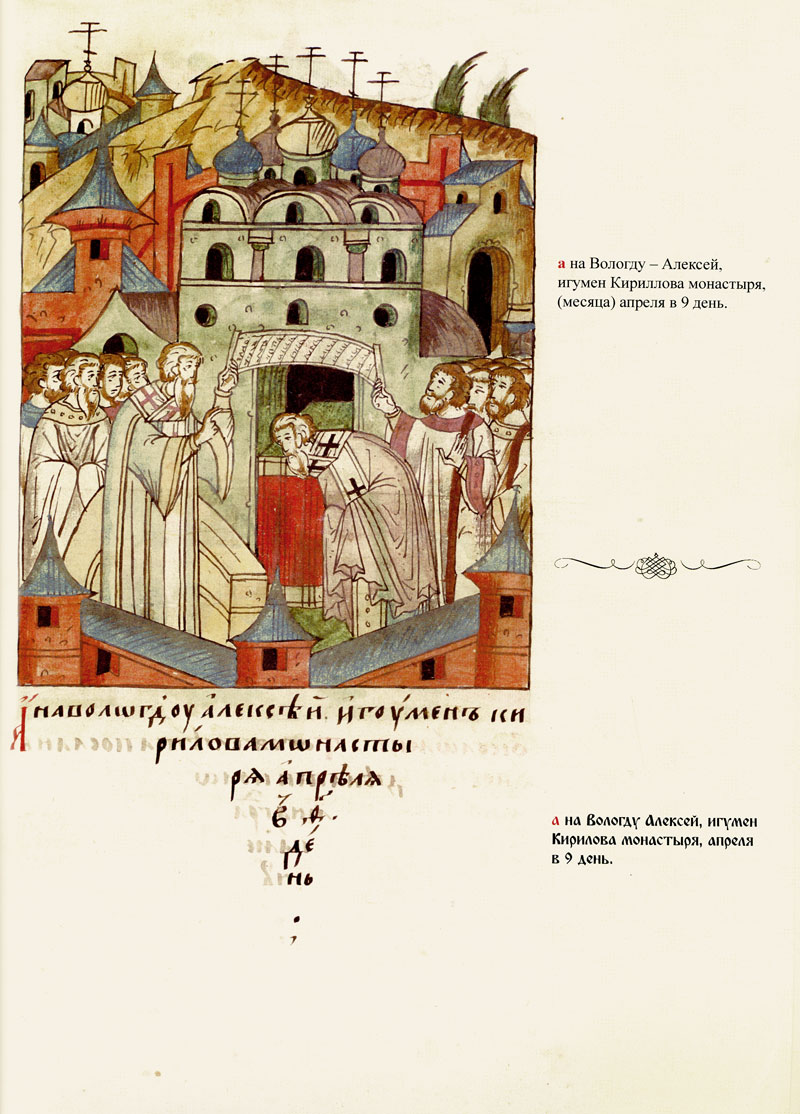 а на Вологду – Алексей,
игумен Кириллова монастыря,
(месяца) апреля в 9 день.
А наволѡгдоу алексѣй. игоуменъ ки
риловамѡнасты
рѧ апрѣлѧ
в ѳ҃.
де
нь
а на Вологду Алексей, игумен
Кирилова монастыря, апреля
в 9 день.